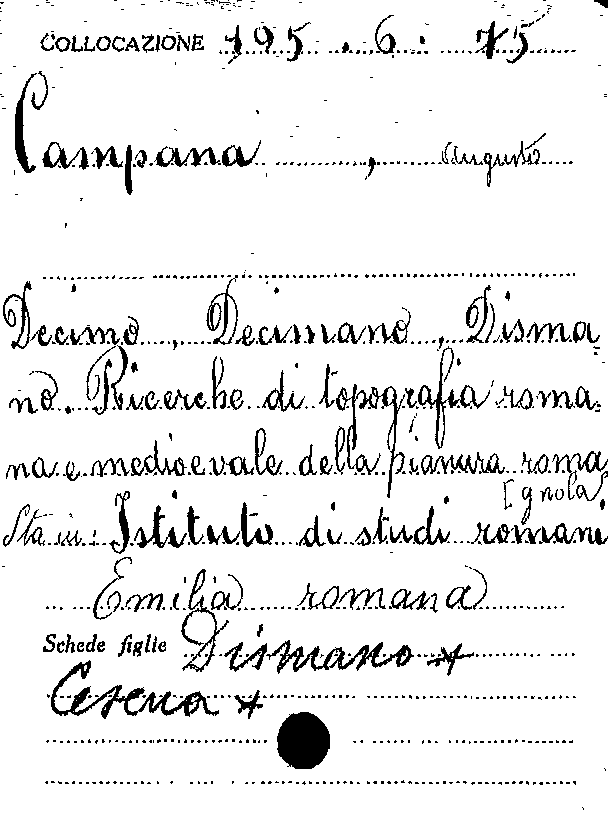 COLLOCAZIONE 195.6.75
Campana, Augusto
Decimo, Decimano, Disma=
no. Ricerche di topografia roma=
na e medioevale della pianura roma
[gnola]
Sta in: Istituto di studi romani
Emilia romana
Schede figlie Dismano *
Cesena *